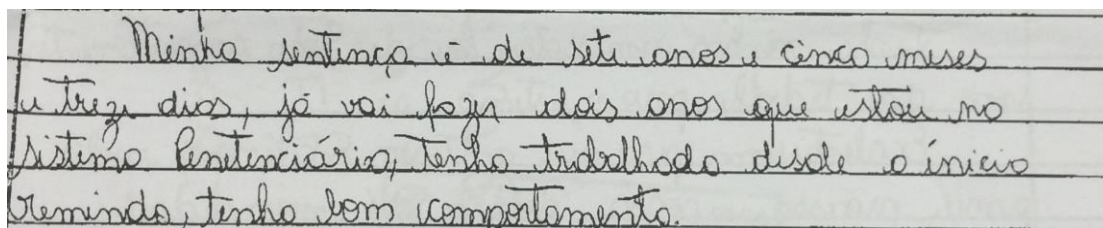 Minha sentença é de sete anos e cinco meses
e treze dias, já vai fazer dois anos que estou no
sistema Penitenciário, tenho trabalhado desde o ínicio
remindo, tenho bom comportamento.